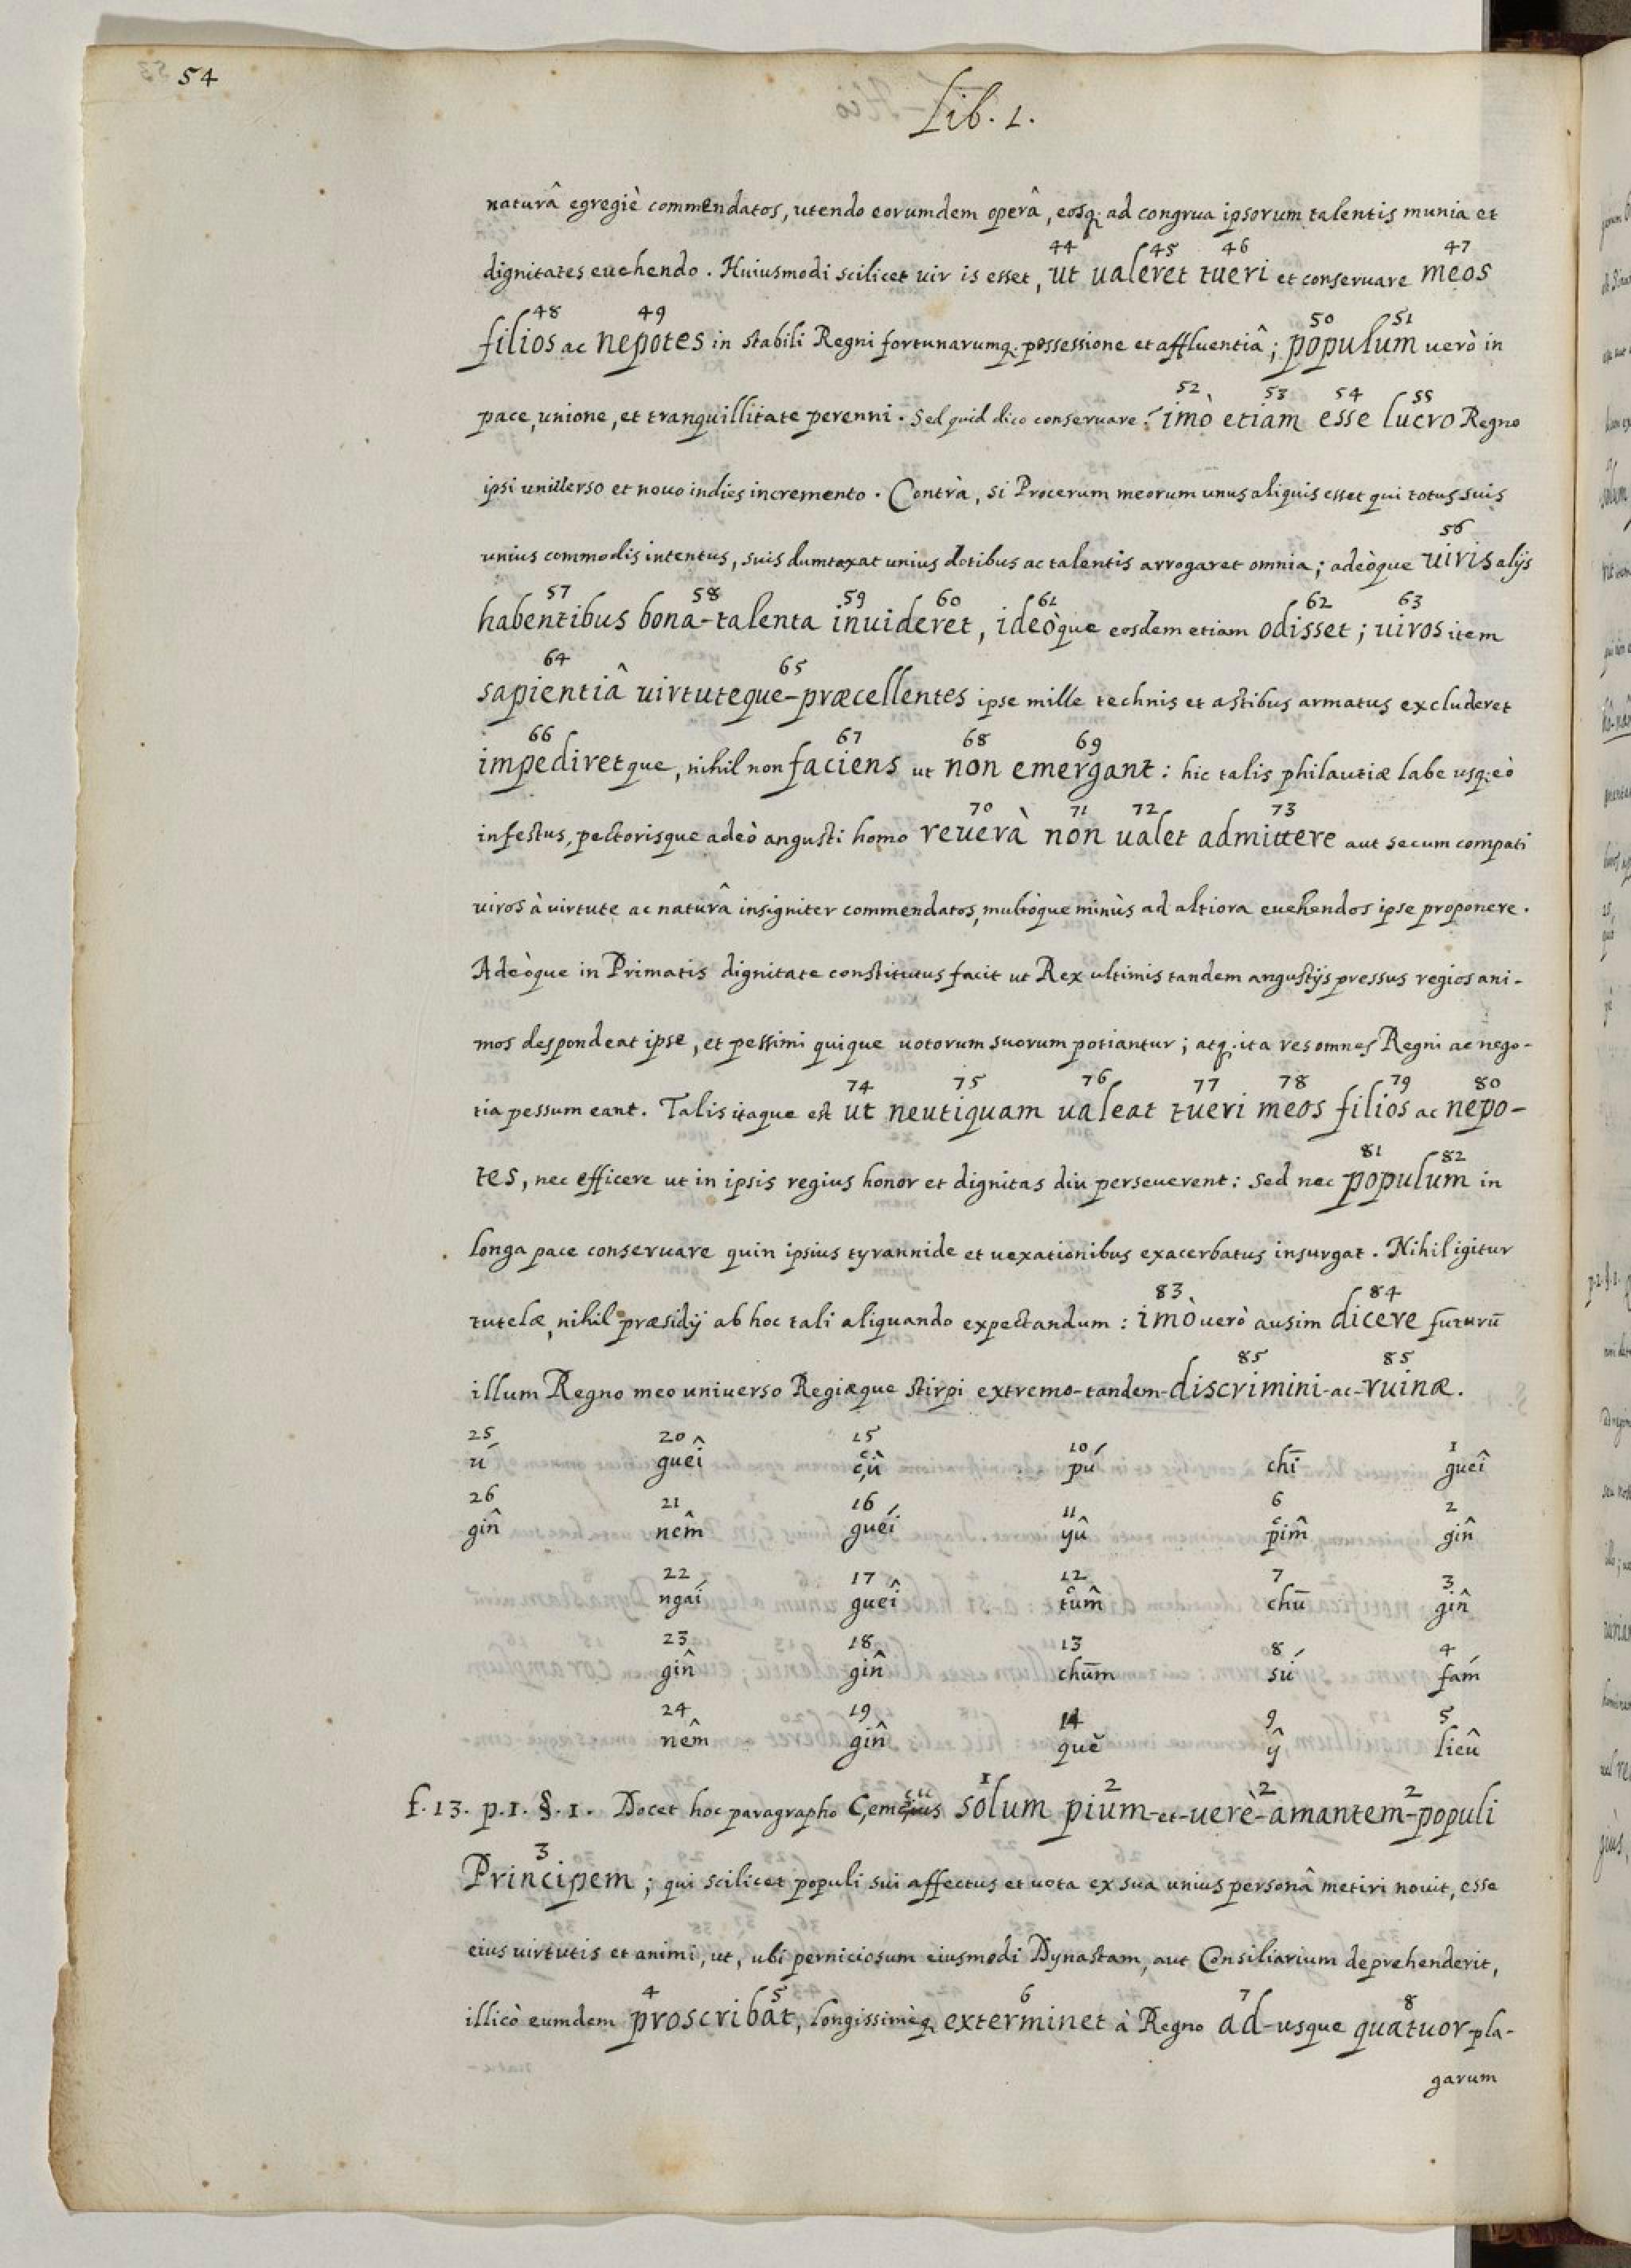 54
Lib. 1.
naturâ egregiè commendatos, utendo eorumdem operâ, eosq. ad congrua ipsorum talentis munia et
44 45 46 47
dignitates euehendo. Huiusmodi scilicet uir is esset, ut ualeret tueri et conseruare meos
48 49 50 51
filios ac nepotes in stabili Regni fortunarumq. possessione et affluentiâ; populum uerò in
52 53 54 55
pace, unione, et tranquillitate perenni. Sed quid dico conseruare? imò etiam esse lucro Regno
ipsi uniuerso et nouo indies incremento. Contrà, si Procerum meorum unus aliquis esset qui totus suis
56
unius commodis intentus, suis dumtaxat unius dotibus ac talentis arrogaret omnia; adeòque uiris alijs
57 58 59 60 61 62 63
habentibus bona-talenta inuideret, ideòque eosdem etiam odisset; uiros item
64 65
sapientiâ uirtuteque-præcellentes ipse mille technis et astibus armatus excluderet
66 67 68 69
impediretque, nihil non faciens ut non emergant: hic talis philautiæ labe usq. eò
70 71 72 73
infestus, pectorisque adeò angusti homo reuerà non ualet admittere aut secum compati
uiros à uirtute ac naturâ insigniter commendatos, multòque minùs ad altiora euehendos ipse proponere.
Adeòque in Primatis dignitate constitutus facit ut Rex ultimis tandem angustijs pressus regios ani-
mos despondeat ipse, et pessimi quique uotorum suorum potiantur; atq. ita res omnes Regni ac nego-
74 75 76 77 78 79 80
tia pessum eant. Talis itaque est ut neutiquam ualeat tueri meos filios ac nepo-
81 82
tes, nec efficere ut in ipsis regius honor et dignitas diu perseuerent: sed nec populum in
longa pace conseruare quin ipsius tyrannide et uexationibus exacerbatus insurgat. Nihil igitur
83 84
tutelæ, nihil præsidij ab hoc tali aliquando expectandum: imò uerò ausim dicere futurū
85 85
illum Regno meo uniuerso Regiæque stirpi extremo-tandem-discrimini-ac-ruinæ.
25 20 15 10 1
ú gueî çù pú chī gueî
26 21 16 11 6 2
gin̂ nem̂ guéi yû pim̂ gin̂
22 17 12 7 3
ngaí gueî tum̂ chū gin̂
23 18 13 8 4
gin̂ gin̂ chūm sú fám
24 19 14 9 5
nem̂ gin̂ quĕ ŷ lieû
1 2 2 2
f. 13. p. 1. §. 1. Docet hoc paragrapho solum pium-et-uerè-amantem-populi
3
Principem; qui scilicet populi sui affectus et uota ex sua unius personâ metiri nouit, esse
eius uirtutis et animi, ut, ubi perniciosum eiusmodi Dynastam, aut Consiliarium deprehenderit,
4 5 6 7 8
illicò eumdem proscribat, longissimèq. exterminet à Regno ad-usque quatuor-pla-
garum